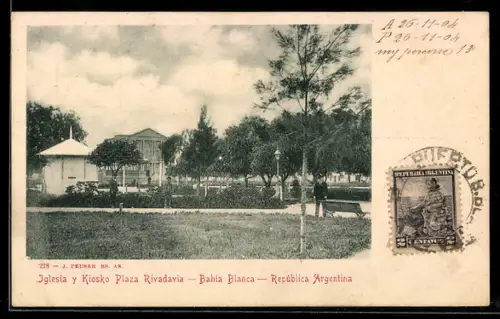 A 26-11-04
P 26-11-04
my
12
PUERTO B.
REPUBLICA ARGENTINA
2 CENTAVOS 2
218 - J. PEUSER BS. AS.
Iglesia y Kiosko Plaza Rivadavia — Bahía Blanca — República Argentina